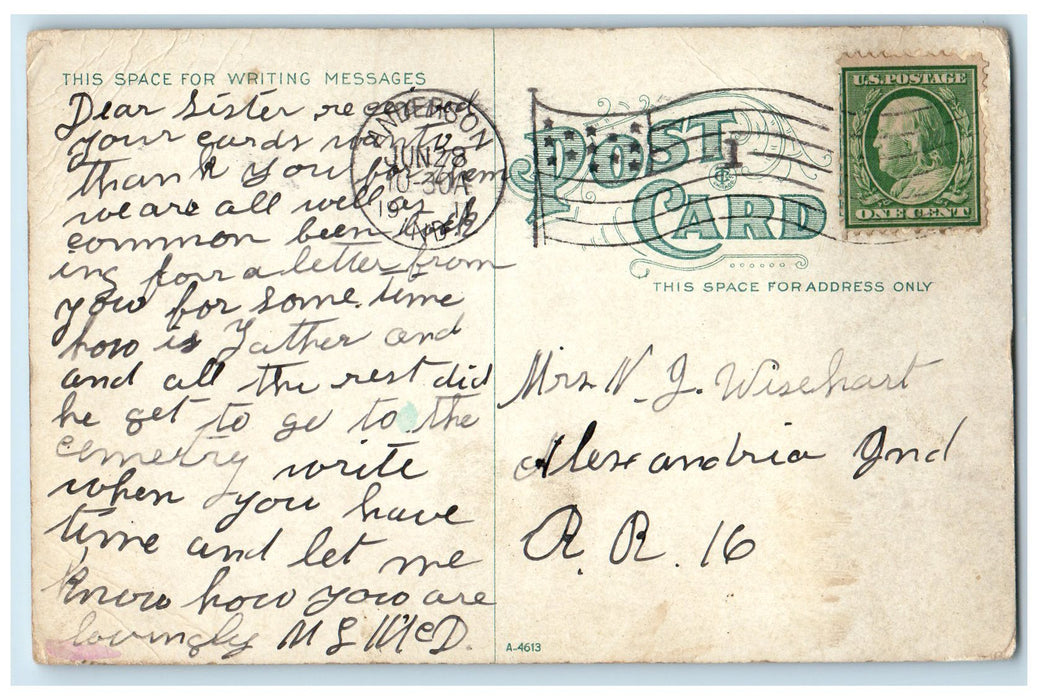 THIS SPACE FOR WRITING MESSAGES
Dear Sister received
your cards want to
thank you for them
we are all well as
common been look
ing for a letter from
you for some time
how is Father and
and all the rest did
he get to go to the
cemetry write
when you have
time and let me
know how you are
lovingly M L McD.
ANDERSON
JUN 28
10-30A
19 11
IND.
1
U.S. POSTAGE
ONE CENT
POST
CARD
THIS SPACE FOR ADDRESS ONLY
Mrs N. J. Wisehart
Alexandria Ind
R. R. 16
A-4613